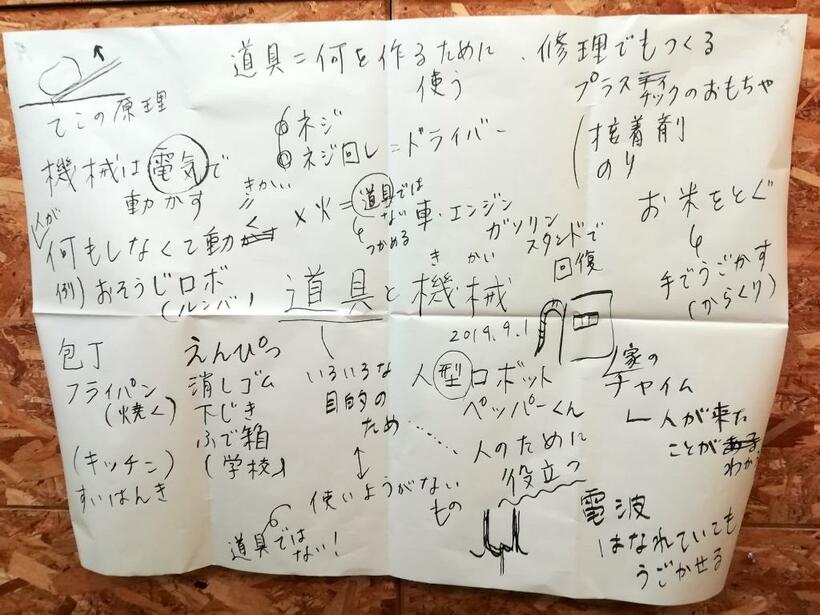 道具=何を作るために
使う
、修理でもつくる
プラスチックのおもちゃ
接着剤
のり
てこの原理
ネジ
ネジ回し=ドライバー
機械は電気で
動かす
きかい
×火=道具では
ない
つかめる
車・エンジン
ガソリン
スタンドで
回復
お米をとぐ
手でうごかす
(からくり)
人が
何もしなくて動く
例)おそうじロボ
(ルンバ)
道具と機械
きかい
2019.9.1
包丁
フライパン
(焼く)
(キッチン)
すいはんき
えんぴつ
消しゴム
下じき
ふで箱
(学校)
いろいろな
目的の
ため
使いようがない
もの
道具では
ない!
人型ロボット
ペッパーくん
人のために
役立つ
家の
チャイム
人が来た
ことが
わかる
電波
はなれていても
うごかせる